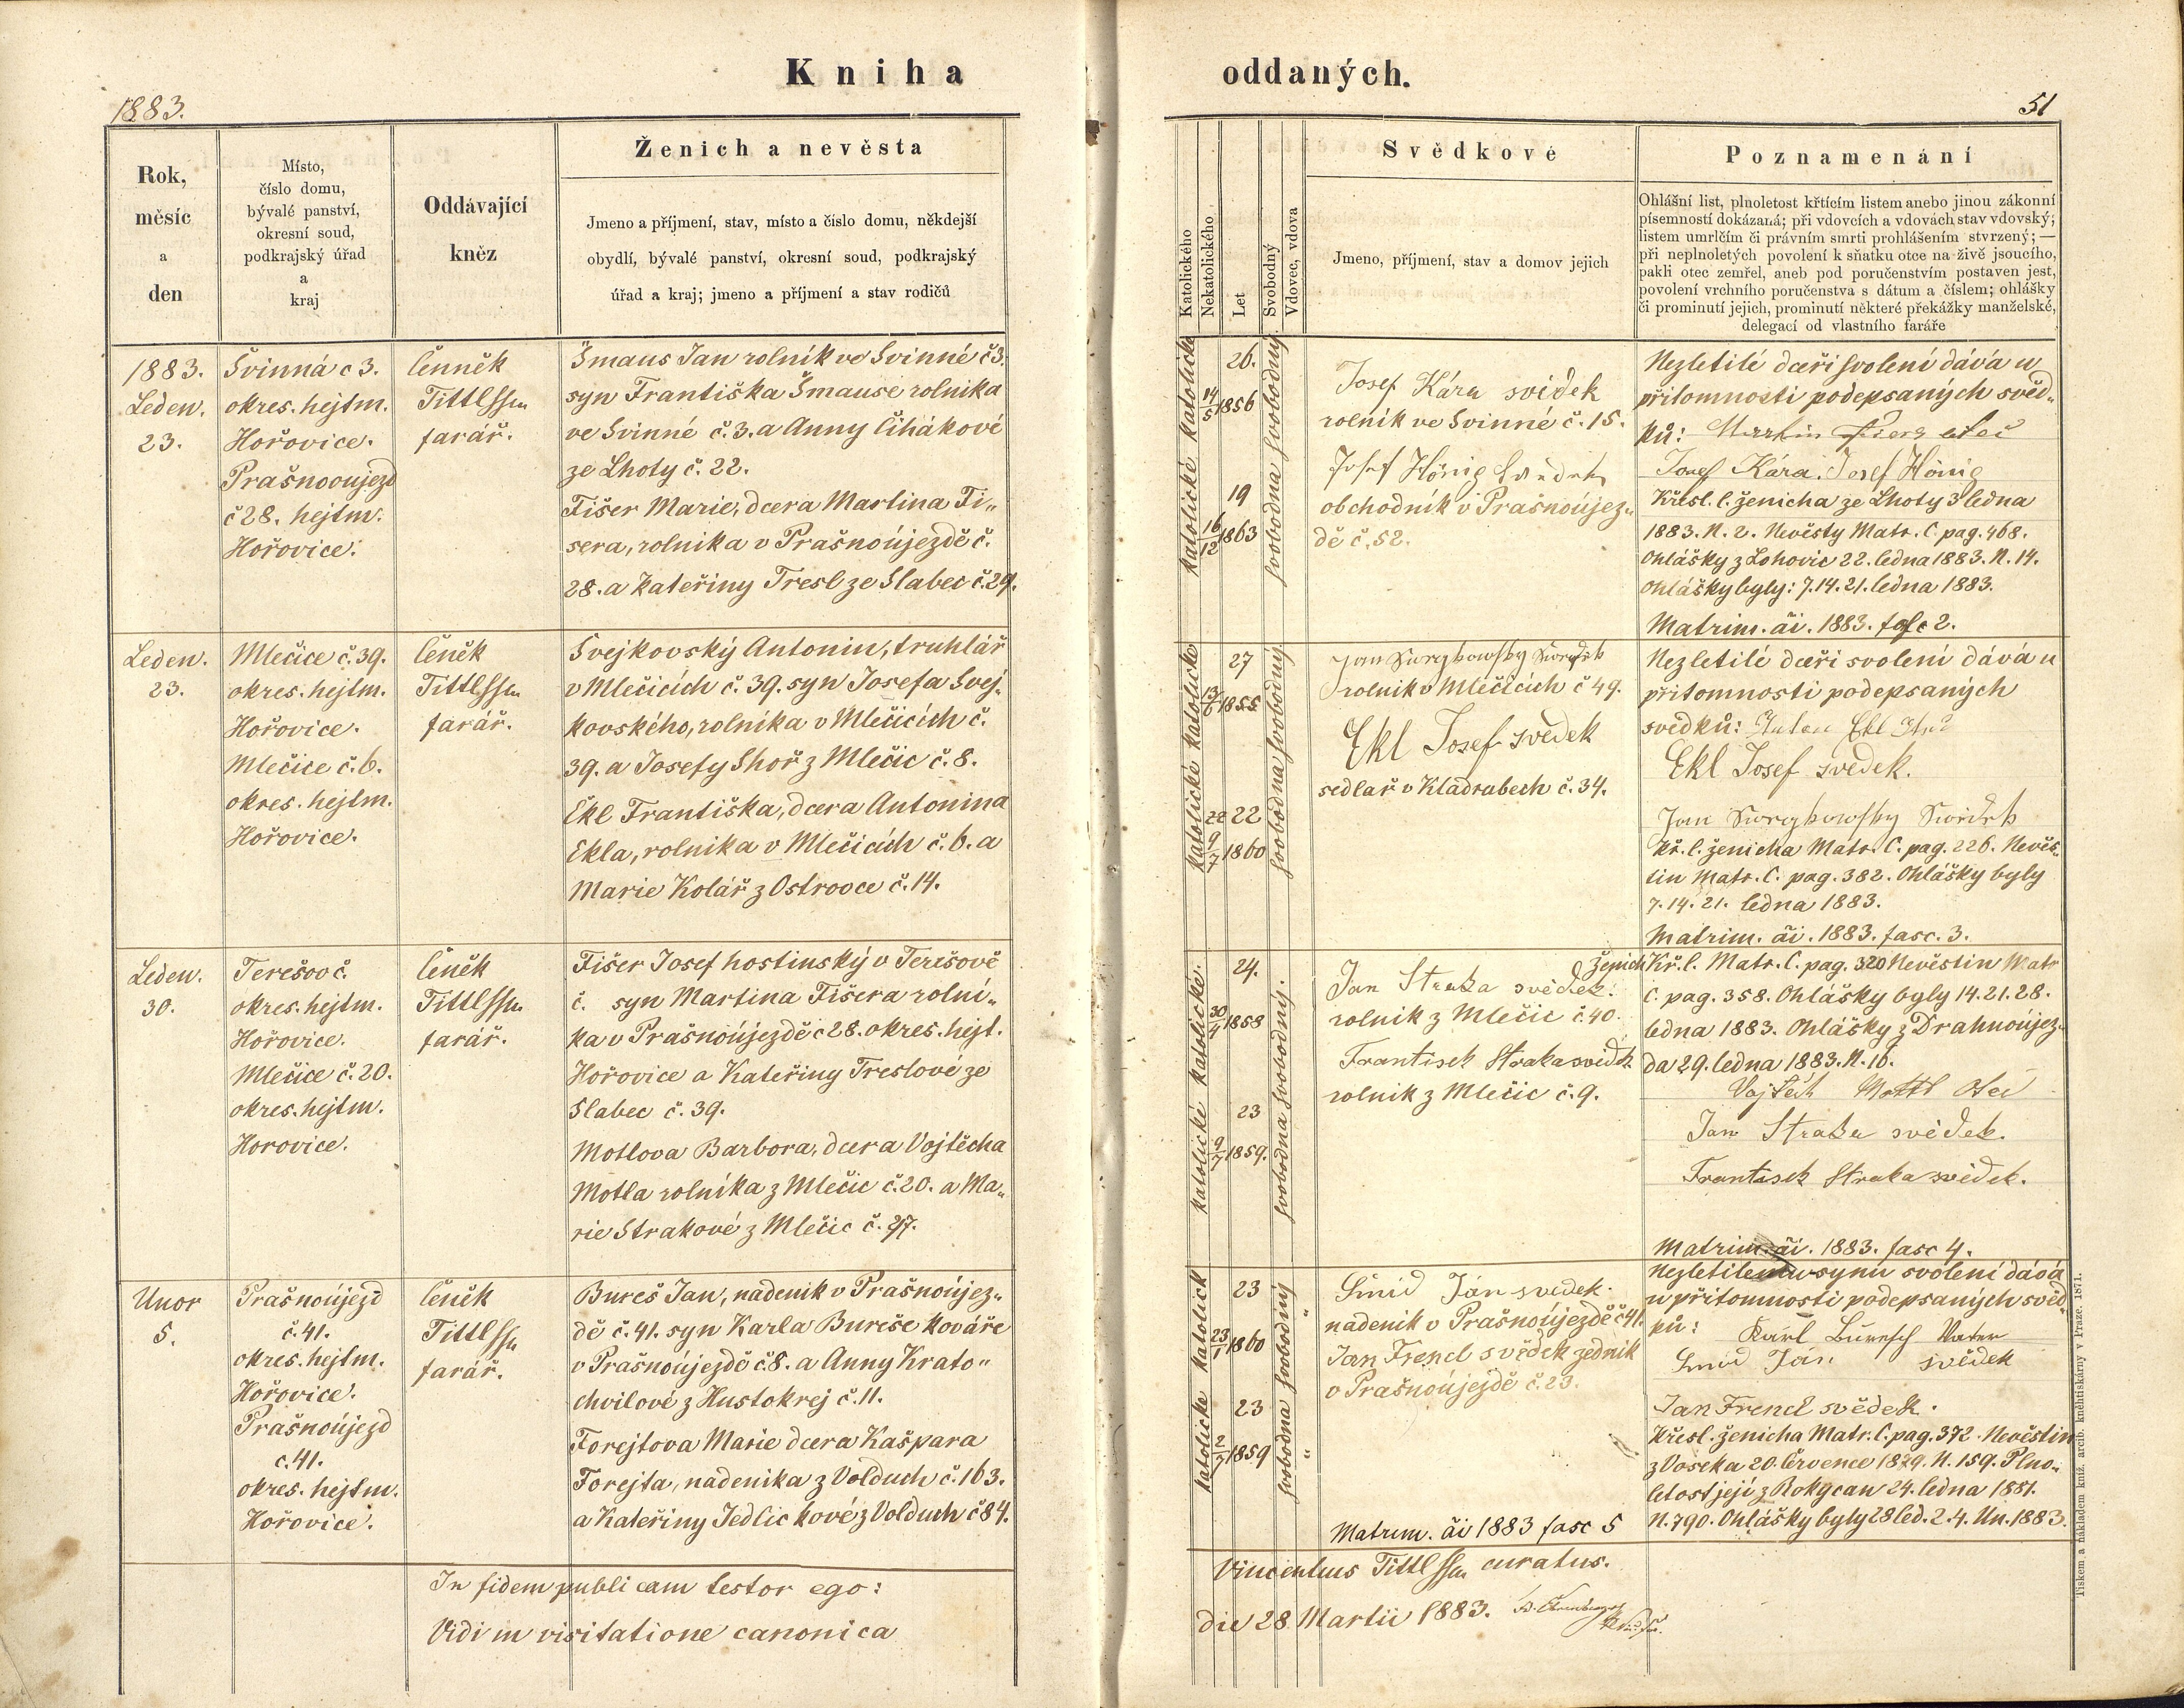 Kniha
oddaných.
1883.
51
Rok,
měsíc
a
den
Místo,
číslo domu,
bývalé panství,
okresní soud,
podkrajský úřad
a
kraj
Oddávající
kněz
Ženich a nevěsta
Jmeno a příjmení, stav, místo a číslo domu, někdejší
obydlí, bývalé panství, okresní soud, podkrajský
úřad a kraj; jmeno a příjmení a stav rodičů
Katolického
Nekatolického
Let
Svobodný
Vdovec, vdova
Svědkové
Jmeno, příjmení, stav a domov jejich
Poznamenání
Ohlášní list, plnoletost křtícím listem anebo jinou zákonní
písemností dokázaná; při vdovcích a vdovách stav vdovský;
listem umrlčím či právním smrti prohlášením stvrzený; —
při neplnoletých povolení k sňatku otce na živě jsoucího,
pakli otec zemřel, aneb pod poručenstvím postaven jest,
povolení vrchního poručenstva s dátum a číslem; ohlášky
či prominutí jejich, prominutí některé překážky manželské,
delegací od vlastního faráře
1883.
Leden.
23.
Švinná c 3.
okres. hejtm.
Hořovice.
Prašnooujezd
č 28. hejtm.
Hořovice.
Čenněk
Tittl
farář.
Šmaus Jan rolník ve Svinné č 3.
syn Františka Šmause rolníka
ve Svinné č. 3. a Anny Čihákové
ze Lhoty č. 22.
Fišer Marie, dcera Martina Fi„
sera, rolníka v Prašnoújezdě č.
28. a Kateřiny Tresl ze Slabec č. 29.
katolické katolické
26.
14/5 1856
19
16/12 1863
svobodna svobodný.
Josef Kára svědek
rolník ve Svinné č. 15.
Josef Hönig
obchodník v Prašnoújez„
dě č. 52.
Nezletilé dceři svolení dává u
přítomnosti podepsaných svěd„
ků: Martin
Josef Kára. Josef Hönig
Křest. l. ženicha ze Lhoty 3 ledna
1883. N. 2. Nevěsty Matr. C. pag. 468.
Ohlášky z Lohovic 22. ledna 1883. N. 14.
Ohlášky byly: 7. 14. 21. ledna 1883.
Matrim. ăi. 1883. fasc 2.
Leden.
23.
Mlečice č. 39.
okres. hejtm.
Hořovice.
Mlečice č. 6.
okres. hejtm.
Hořovice.
Čeněk
Tittl
farář.
Svejkovský Antonin, truhlář
v Mlečicích č. 39. syn Josefa Svej„
kovského, rolníka v Mlečicích č.
39. a Josefy Shoř z Mlečic č. 8.
Ekl Františka, dcera Antonina
Ekla, rolníka v Mlečicích č. 6. a
Marie Kolář z Ostrovce č. 14.
katolické katolické
27
13/6 1855
22
9/7 1860
svobodna svobodný
Jan
rolník v Mlečicích č 49.
Ekl Josef svědek
sedlař v Kladrubech č. 34.
Nezletilé dceři svolení dává u
přítomnosti podepsaných
svědků: Ekl
Ekl Josef svedek.
Jan
Kř. l. ženicha Matr. C. pag. 226. Nevěs„
tin Matr. C. pag. 382. Ohlášky byly
7. 14. 21. ledna 1883.
Matrim. ăi. 1883. fasc. 3.
Leden.
30.
Terešov č.
okres. hejtm.
Hořovice.
Mlečice č. 20.
okres. hejtm.
Horovice.
Čeněk
Tittl
farář.
Fišer Josef hostinský v Terešově
č. syn Martina Fišera rolní„
ka v Prašnoújezdě č 28. okres. hejt.
Hořovice a Kateřiny Treslové ze
Slabec č. 39.
Motlova Barbora, dcera Vojtěcha
Motla rolníka z Mlečic č. 20. a Ma„
rie Strakové z Mlečic č. 27.
katolické katolické.
24.
30/4 1858
23
9/7 1859.
svobodna svobodný.
Jan Straka svědek.
rolník z Mlečic č. 40.
Frantisek Straka svědek
rolník z Mlečic č. 9.
Ženich Kř. l. Matr. C. pag. 320 Nevěstin Matr
C. pag. 358. Ohlášky byly 14. 21. 28.
ledna 1883. Ohlášky z Drahnoújez„
da 29. ledna 1883. N. 16.
Vojtěch Mottl Otec
Jan Straka svědek.
Frantisek Straka svědek.
Matrim. ăi. 1883. fasc 4.
Unor
5.
Prašnoújezd
č. 41.
okres. hejtm.
Hořovice.
Prašnoújezd
c. 41.
okres. hejtm.
Hořovice.
Čeněk
Tittl
farář.
Bureš Jan, nadeník v Prašnoújez„
dě č. 41. syn Karla Bureše kováře
v Prašnoújezdě č. 8. a Anny Krato„
chvilové z Hustokrej č. 11.
Forejtova Marie dcera Kašpara
Forejta, nadeníka z Volduch č. 163.
a Kateřiny Jedlickové z Volduch č 84.
katolické katolick
23
23/1 1860
23
2/7 1859
svobodna svobodný
Smid Ján svedek.
nadeník v Prašnoújezdě č 41.
Jan Frencl svědek zedník
v Prašnoújezdě č. 23.
Matrim. ăi 1883 fasc 5
Nezletilemu synu svolení dává
u přítomnosti podepsaných svěd„
ků: Karl Buresch Vater
Smid Ján svědek
Jan Frencl svědek.
Křest. ženicha Matr. C. pag. 372. Nevěstin
z Voseka 20. července 1879. N. 159. Plno„
letost její z Rokycan 24. ledna 1881.
N. 790. Ohlášky byly 28 led. 2. 4. Un. 1883.
In fidem publicam testor ego:
Vincentius Tittl curatus.
Vidi in visitatione canonica
die 28 Martii 1883.
Tiskem a nákladem kníž. arcib. knihtiskárny v Praze. 1871.